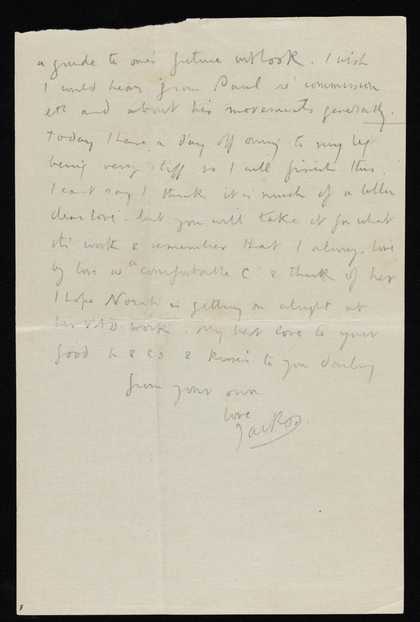 a guide to one's future outlook. I wish
I could hear from Paul re commission
etc and about his movements generally.
Today I have a day off owing to my leg
being very stiff so I will finish this.
I can't say I think it is much of a letter
dear love. but you will take it for what
its worth & remember that I always love
my "comfortable C" & think of her
I hope Norah is getting on alright at
her VAD work. My best love to your
good & & to you darling
from your own
love